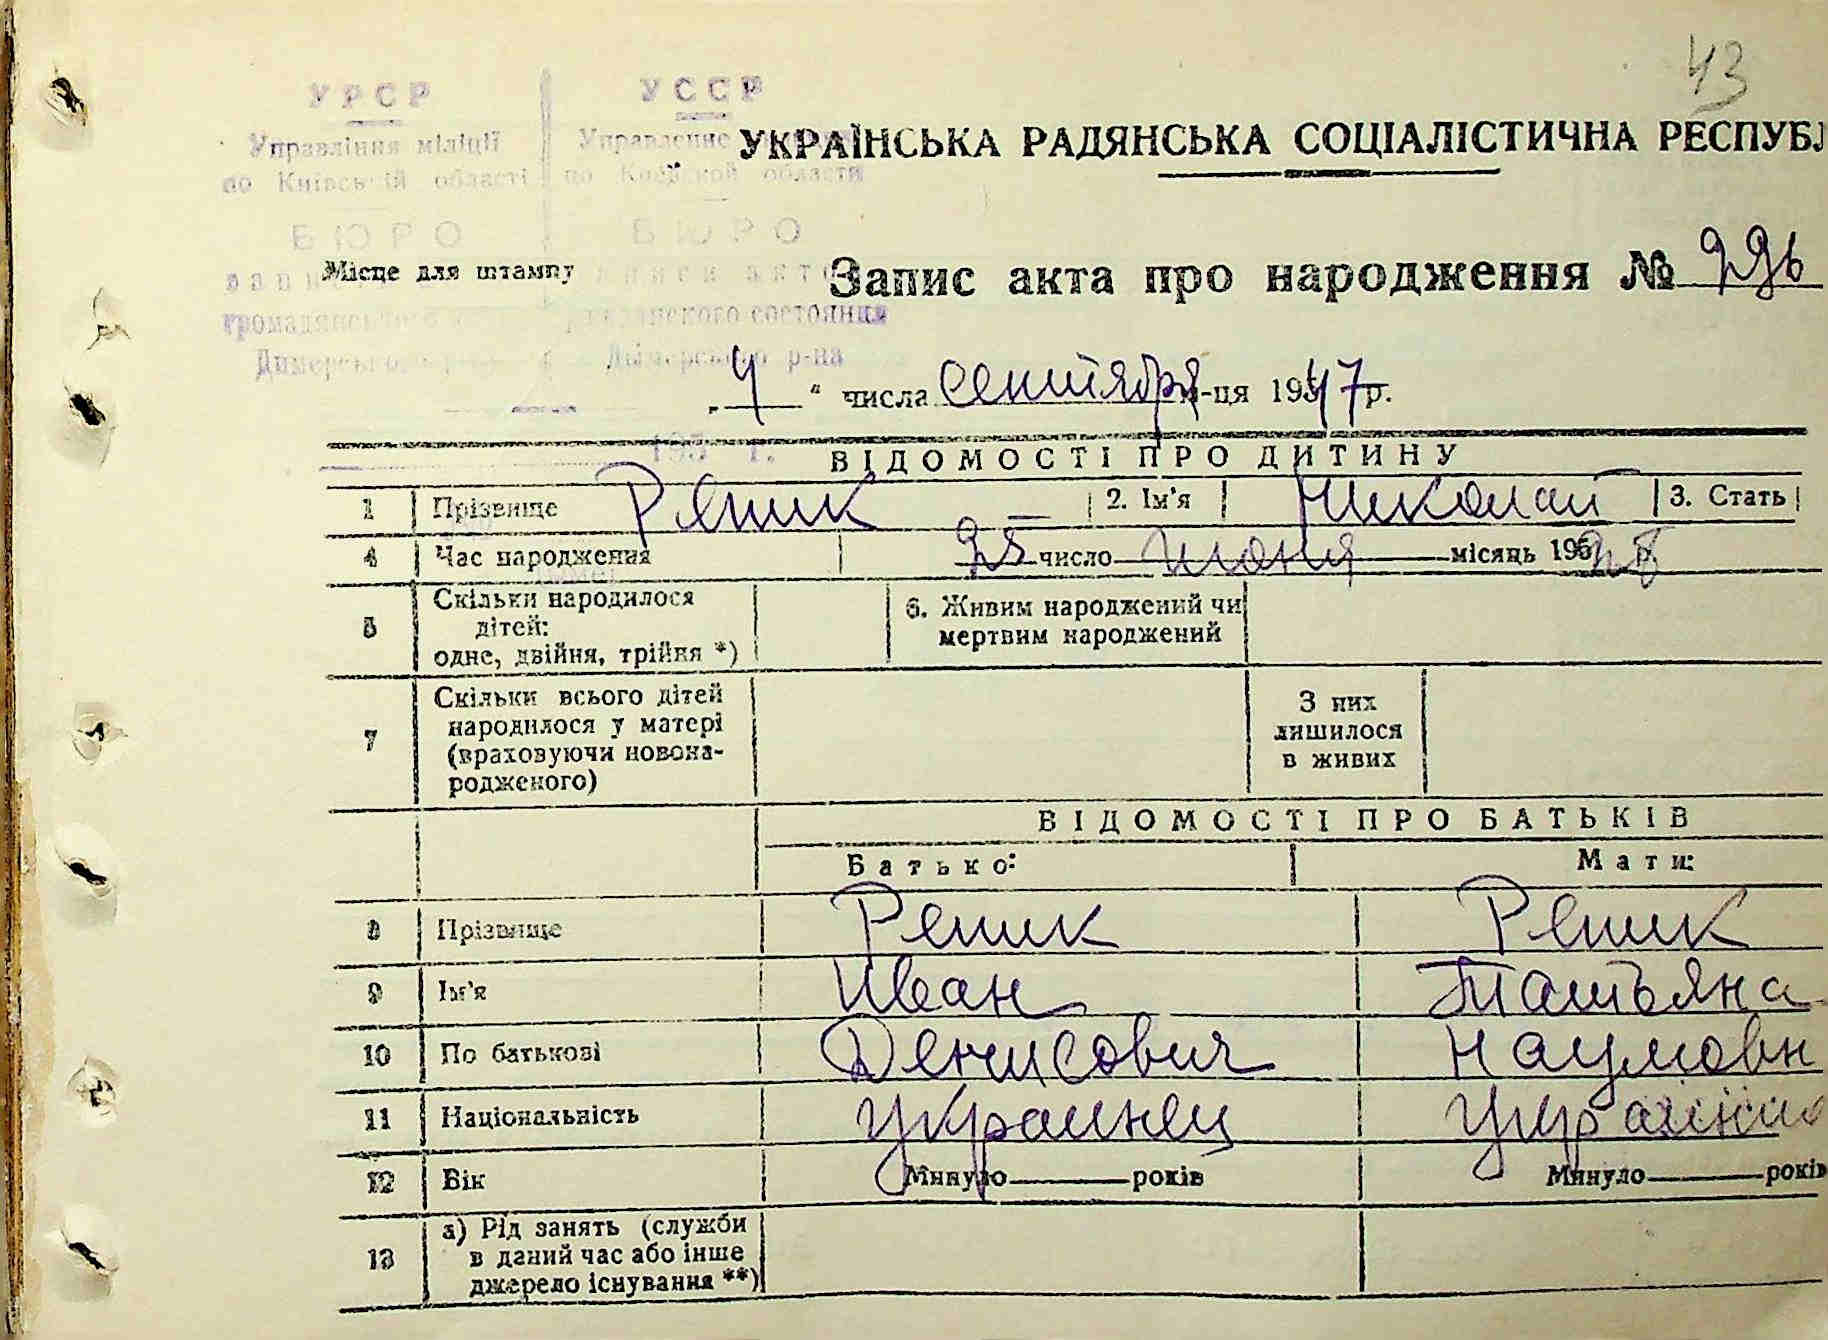 43
УРСР УССР
Управління міліції Управление
по Київській області по Киевской области
УКРАЇНСЬКА РАДЯНСЬКА СОЦІАЛІСТИЧНА РЕСПУБЛ
БЮРО БЮРО
Місце для штампу
Запис акта про народження №
громадянського гражданского состояния
Димерського Дымерского р-на
„4“ числа сентября м-ця 1947 р.
195 г.
ВІДОМОСТІ ПРО ДИТИНУ
1 Прізвище Репик 2. Ім'я Николай 3. Стать
4 Час народження 28 число июня місяць 1928
5 Скільки народилося
дітей:
одне, двійня, трійня *)
6. Живим народжений чи
мертвим народжений
7 Скільки всього дітей
народилося у матері
(враховуючи новона-
родженого)
З них
лишилося
в живих
ВІДОМОСТІ ПРО БАТЬКІВ
Батько: Мати:
8 Прізвище Репик Репик
9 Ім'я Иван Татьяна
10 По батькові Денисович Наумовн
11 Національність украинец украинка
12 Вік Минуло років Минуло років
13 а) Рід занять (служби
в даний час або інше
джерело існування **)